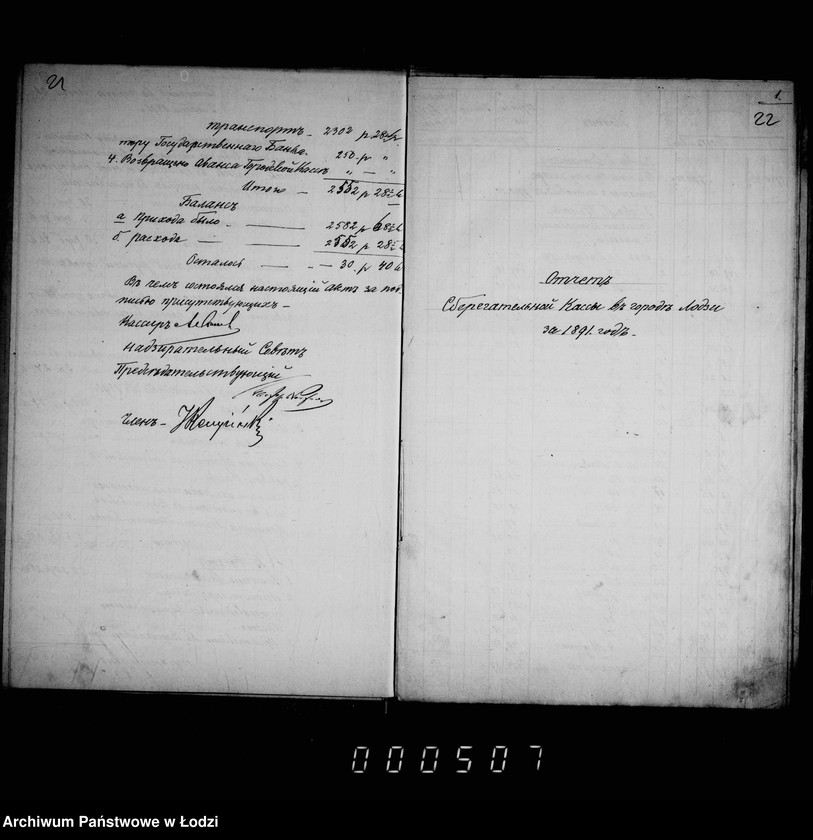 21
транспортъ - 2302 р 28½ к
тору Государственнаго Банка. 250 р "
4. Возвращено Аванса Городской Кассѣ " — "
Итого — 2552 р 28½ к
Балансъ
а прихода было - — 2582 р 68½ к
б. расхода — — 2552 р 28½ к
Осталось — - — 30. р 40 к
Въ чемъ состоялся настоящій актъ за под-
писью присутствующихъ -
Кассиръ
Надзирательный Совѣтъ
Предсѣдательствующій
Членъ -
1.
22
Отчетъ
Сберегательной Кассы въ городѣ Лодзи
за 1891. годъ.
000507
Archiwum Państwowe w Łodzi